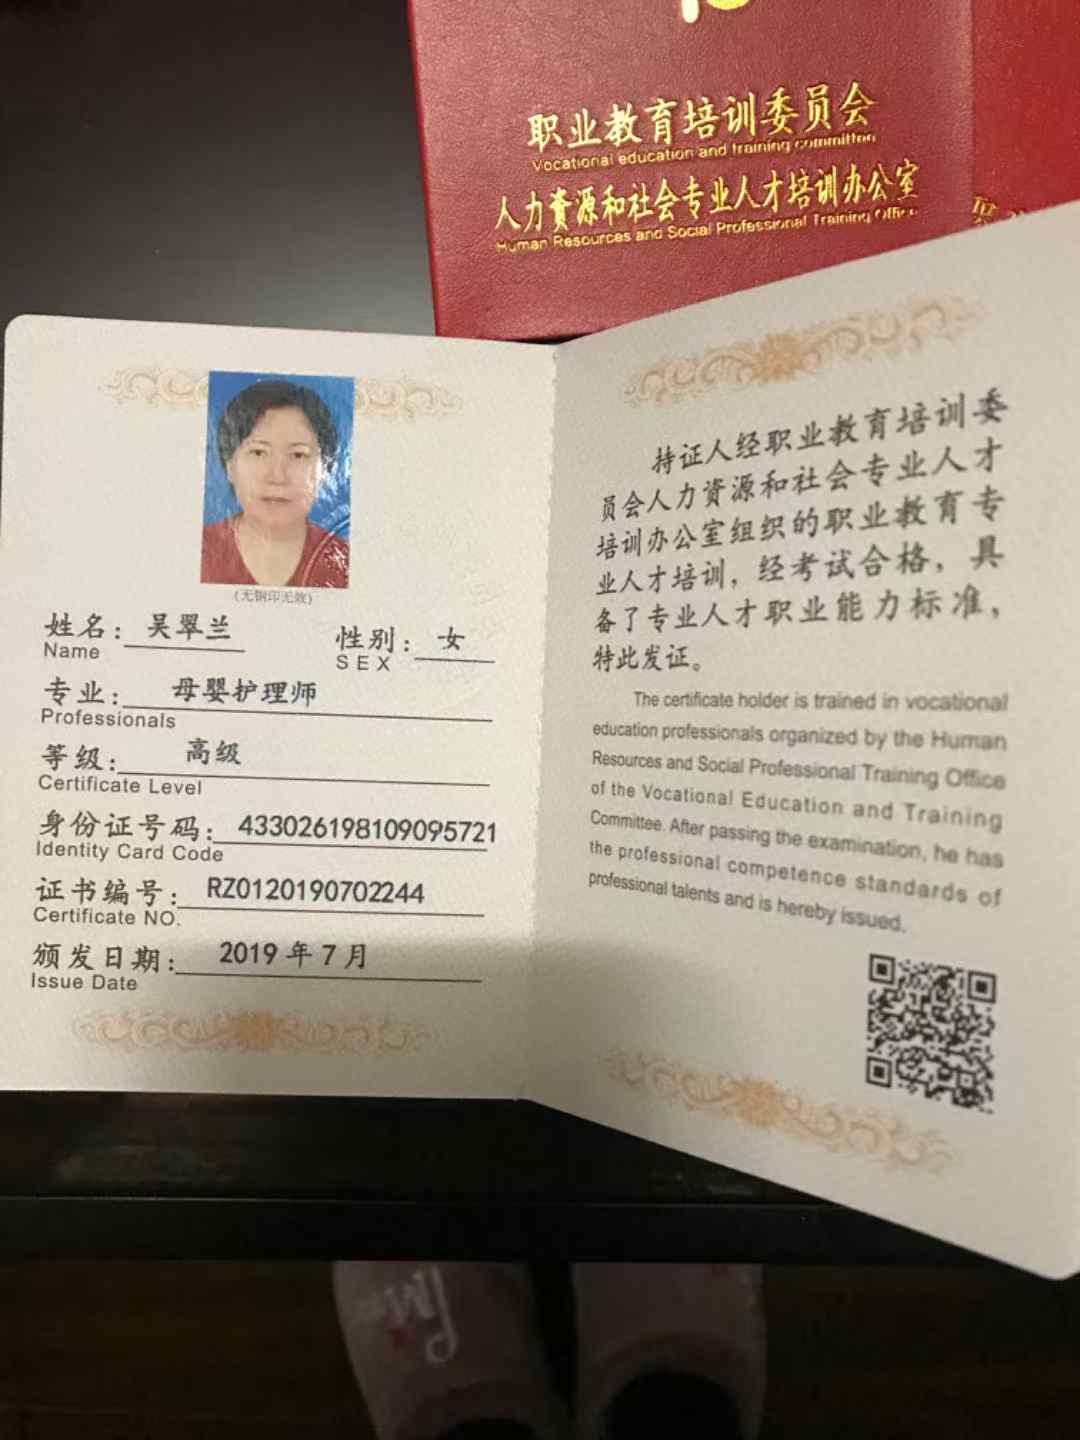 职业教育培训委员会
Vocational education and training committee
人力资源和社会专业人才培训办公室
Human Resources and Social Professional Training Office
(无钢印无效)
姓名: 吴翠兰 性别: 女
Name SEX
专业: 母婴护理师
Professionals
等级: 高级
Certificate Level
身份证号码: 433026198109095721
Identity Card Code
证书编号: RZ0120190702244
Certificate NO.
颁发日期: 2019年7月
Issue Date
持证人经职业教育培训委
员会人力资源和社会专业人才
培训办公室组织的职业教育专
业人才培训，经考试合格，具
备了专业人才职业能力标准，
特此发证。
The certificate holder is trained in vocational
education professionals organized by the Human
Resources and Social Professional Training Office
of the Vocational Education and Training
Committee. After passing the examination, he has
the professional competence standards of
professional talents and is hereby issued.